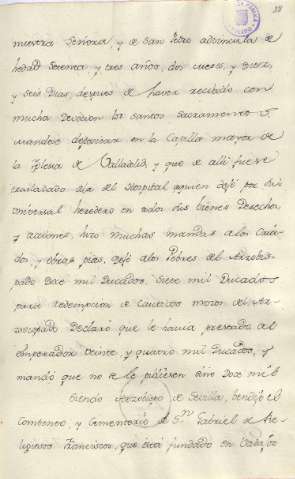 nuestra Señora, y de San Pedro advincula de
hedad setenta y tres años, dos meses, y diez,
y seis dias, despues de haver recibido con
mucha devocion los santos sacramentos
mandose depositar en la Capilla mayor de
la Iglesia de Valladolid, y que de alli fuese
trasladado al Hospital aquien dejó por su
universal heredero en todos sus bienes derechos
y acciones, hizo muchas mandas a los
y obras pias, dejó a los Pobres del Arzobis
pado doce mil Ducados, siete mil Ducados
para redempcion de cautivos mozos del Ar
zobispado Declaró que le havia prestado al
emperador veinte, y quatro mil Ducados, y
mandó que no se le pidiesen sino doce mil
siendo Arzobispo de Sevilla, bendijo el
combento, y Cementerio de Sn. Gabriel de Re
ligiosos Franciscos, que está fundado en Badajoz